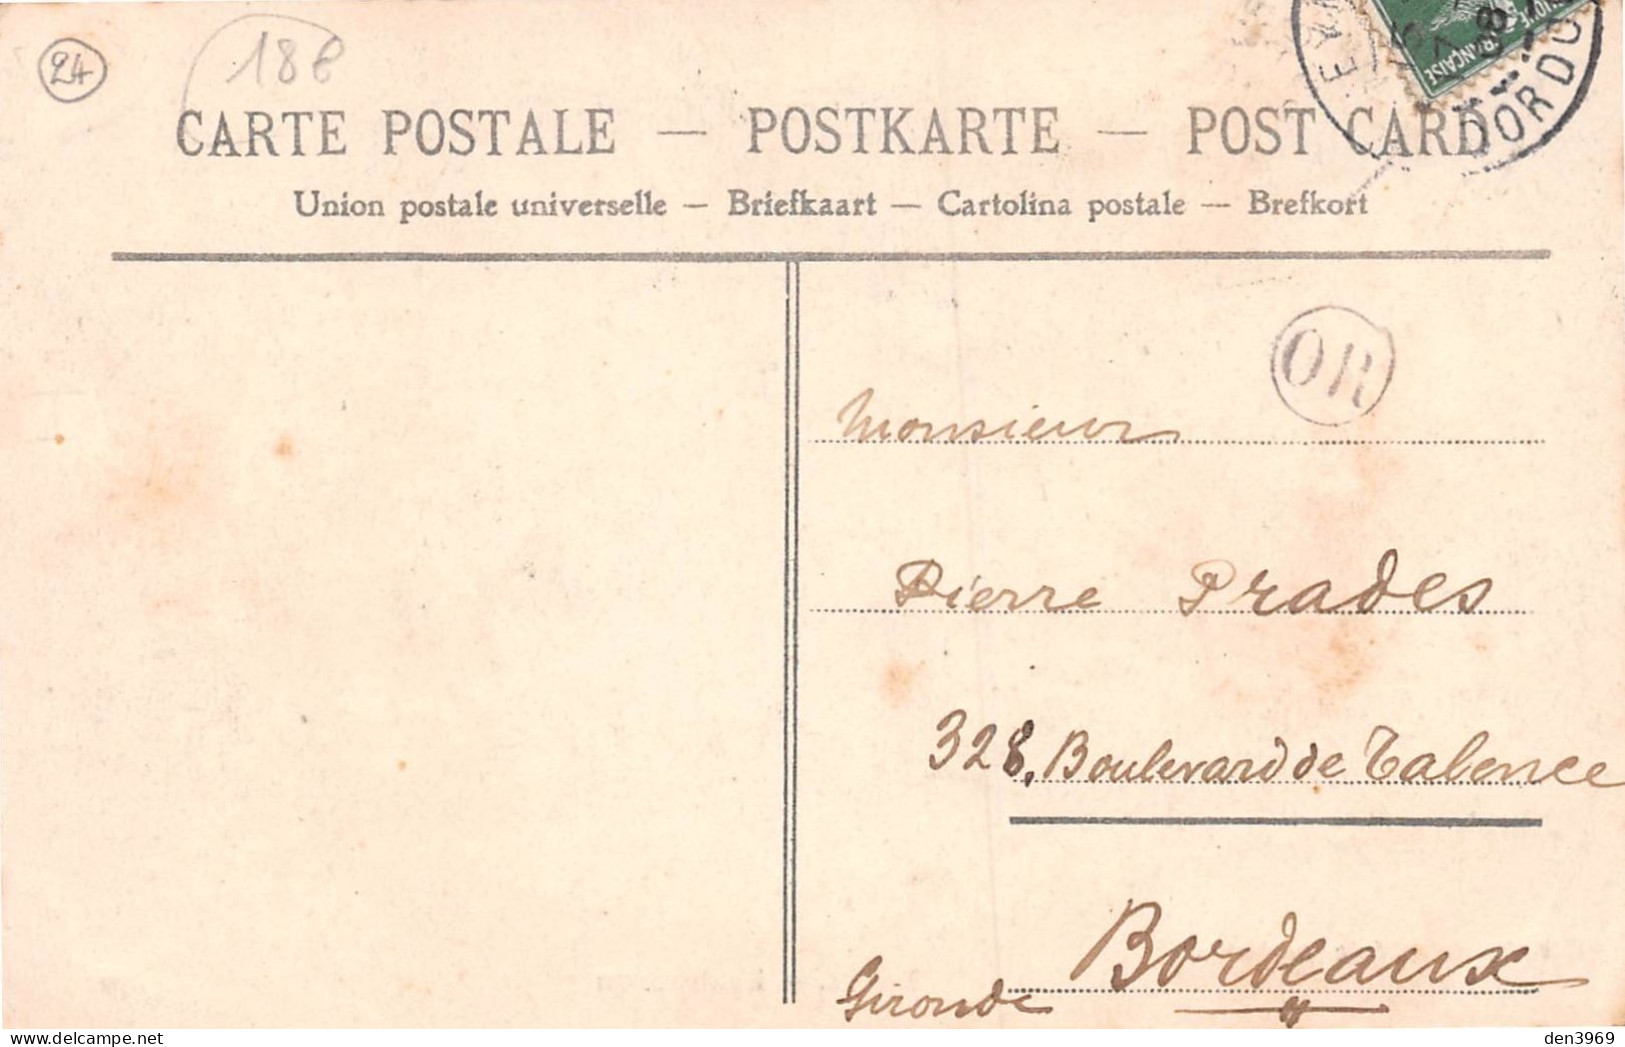 24
18€
CARTE POSTALE — POSTKARTE — POST CARD
Union postale universelle — Briefkaart — Cartolina postale — Brefkort
FRANÇAISE
DORDO
OR
Monsieur
Pierre Prades
328, Boulevard de Talence
Bordeaux
Gironde
den3969